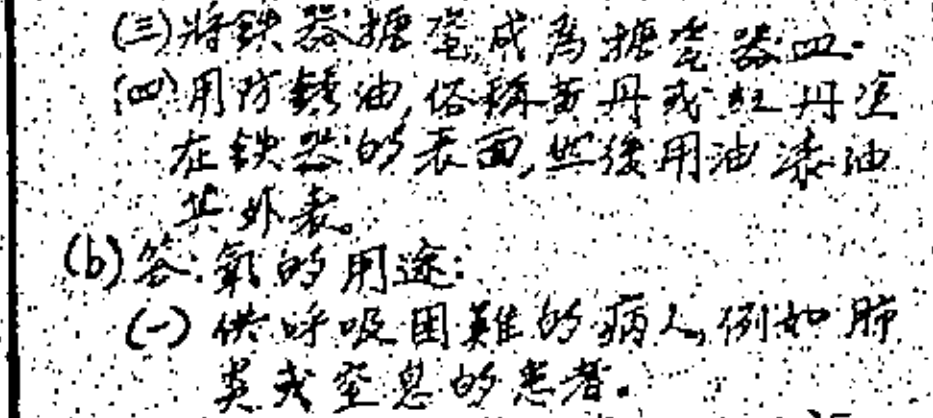 (三)將鉄器搪瓷,成為搪瓷器皿.
(四)用防銹油,俗稱黃丹或紅丹塗
在鉄器的表面,然後用油漆油
其外表。
(b)答:氧的用途:
(一)供呼吸困難的病人,例如肺
炎或窒息的患者。